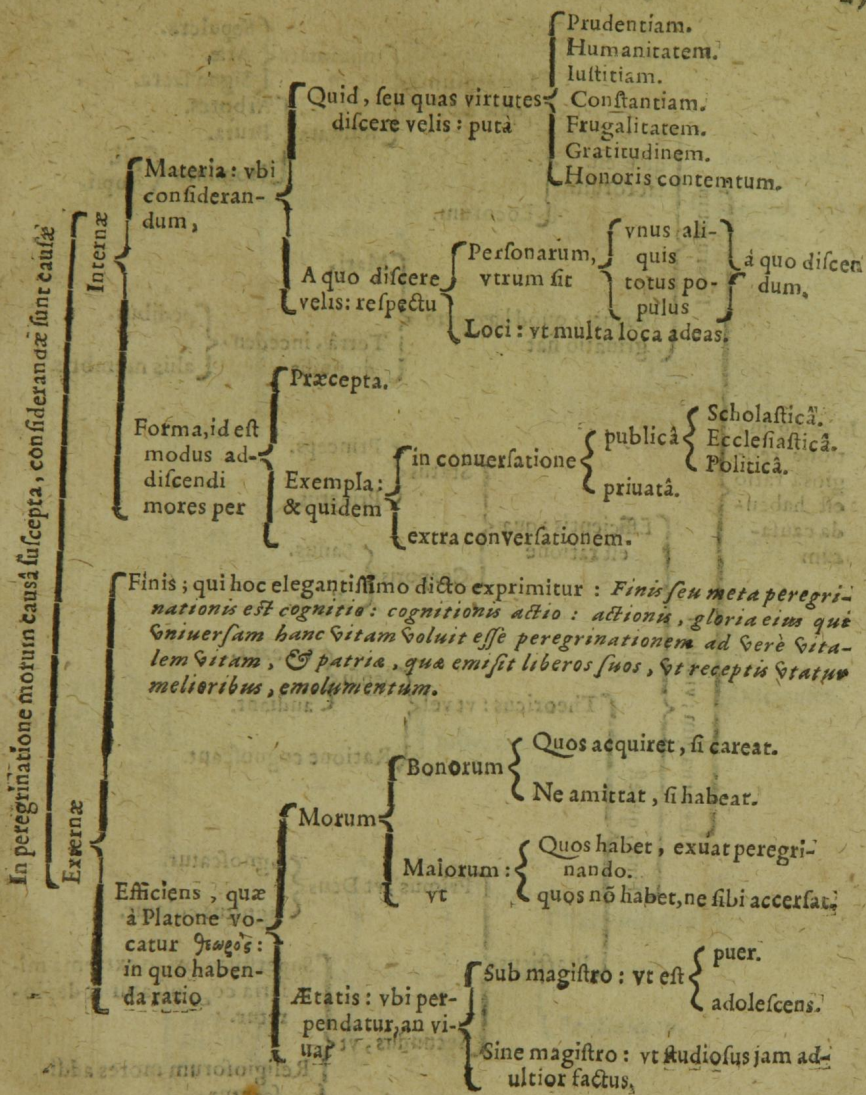 In peregrinatione morum causâ suscepta, considerandæ sunt causæ
Internæ
Materia: vbi
consideran-
dum,
Quid, seu quas virtutes
discere velis: putà
Prudentiam.
Humanitatem.
Iustitiam.
Constantiam.
Frugalitatem.
Gratitudinem.
Honoris contemtum.
A quo discere
velis: respectu
Personarum,
vtrum sit
vnus ali-
quis
totus po-
pulus
á quo discen
dum.
Loci: vt multa loca adeas.
Forma, id est
modus ad-
discendi
mores per
Præcepta.
Exempla:
& quidem
in conuersatione
publicâ
Scholasticâ.
Ecclesiasticâ.
Politicâ.
priuatâ.
extra conversationem.
Externæ
Finis; qui hoc elegantissimo dicto exprimitur: Finis seu meta peregri-
nationis est cognitio: cognitionis actio: actionis, gloria eius qui
vniuersam hanc vitam voluit esse peregrinationem ad verè vita-
lem vitam, & patria, qua emisit liberos suos, vt receptis vtatur
melioribus, emolumentum.
Efficiens, quæ
à Platone vo-
catur
in quo haben-
da ratio
Morum
Bonorum
Quos acquiret, si careat.
Ne amittat, si habeat.
Maiorum:
vt
Quos habet, exuat peregri-
nando.
quos nō habet, ne sibi accersat.
Ætatis: vbi per-
pendatur, an vi-
uat
Sub magistro: vt est
puer.
adolescens.
Sine magistro: vt studiosus jam ad-
ultior factus.